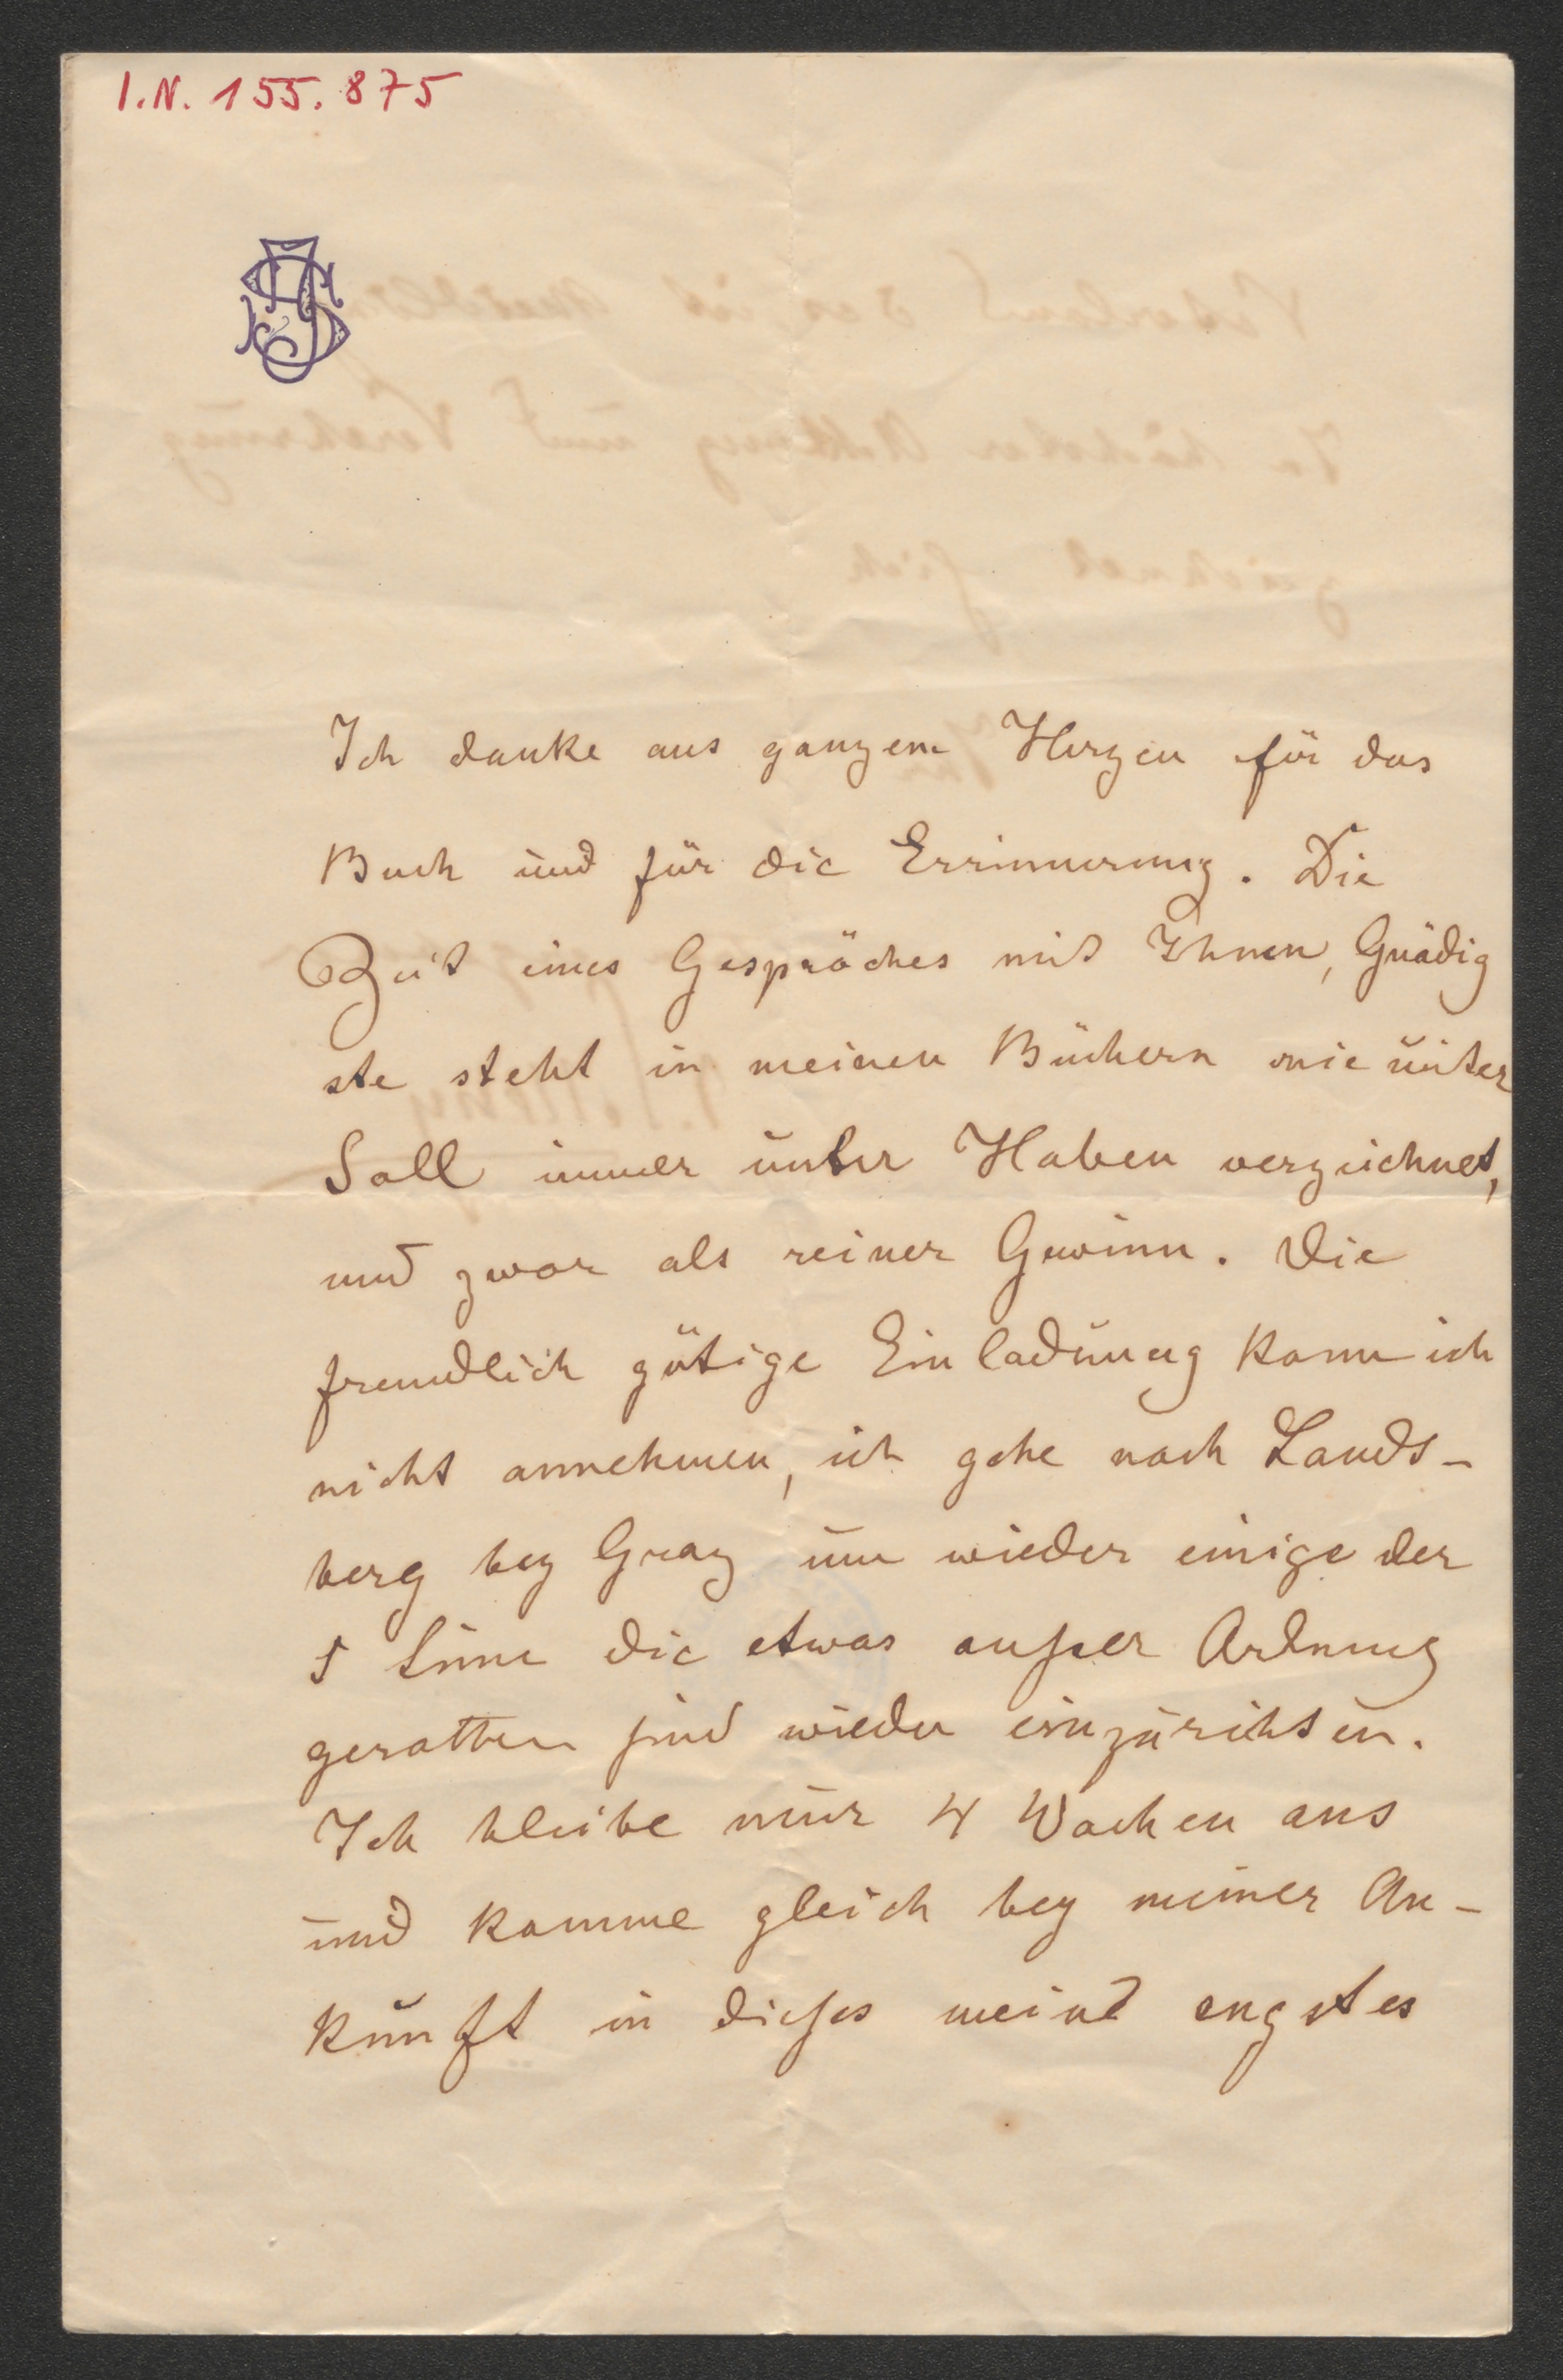 I.N. 155.875
Ich danke aus ganzem Herzen für das
Buch und für die Errinnerung. Die
Zeit eines Gespräches mit Ihnen, Gnädig
ste steht in meinen Büchern nie unter
Soll immer unter Haben verzeichnet,
und zwar als reiner Gewinn. Die
freundlich gütige Einladung kann ich
nicht annehmen, ich gehe nach Lands-
berg bey Graz um wieder einige der
5 Sinne die etwas außer Ordnung
geratten sind wieder einzurichten.
Ich bleibe nur 4 Wochen aus
und komme gleich bey meiner An-
kunft in dießes meine engstes